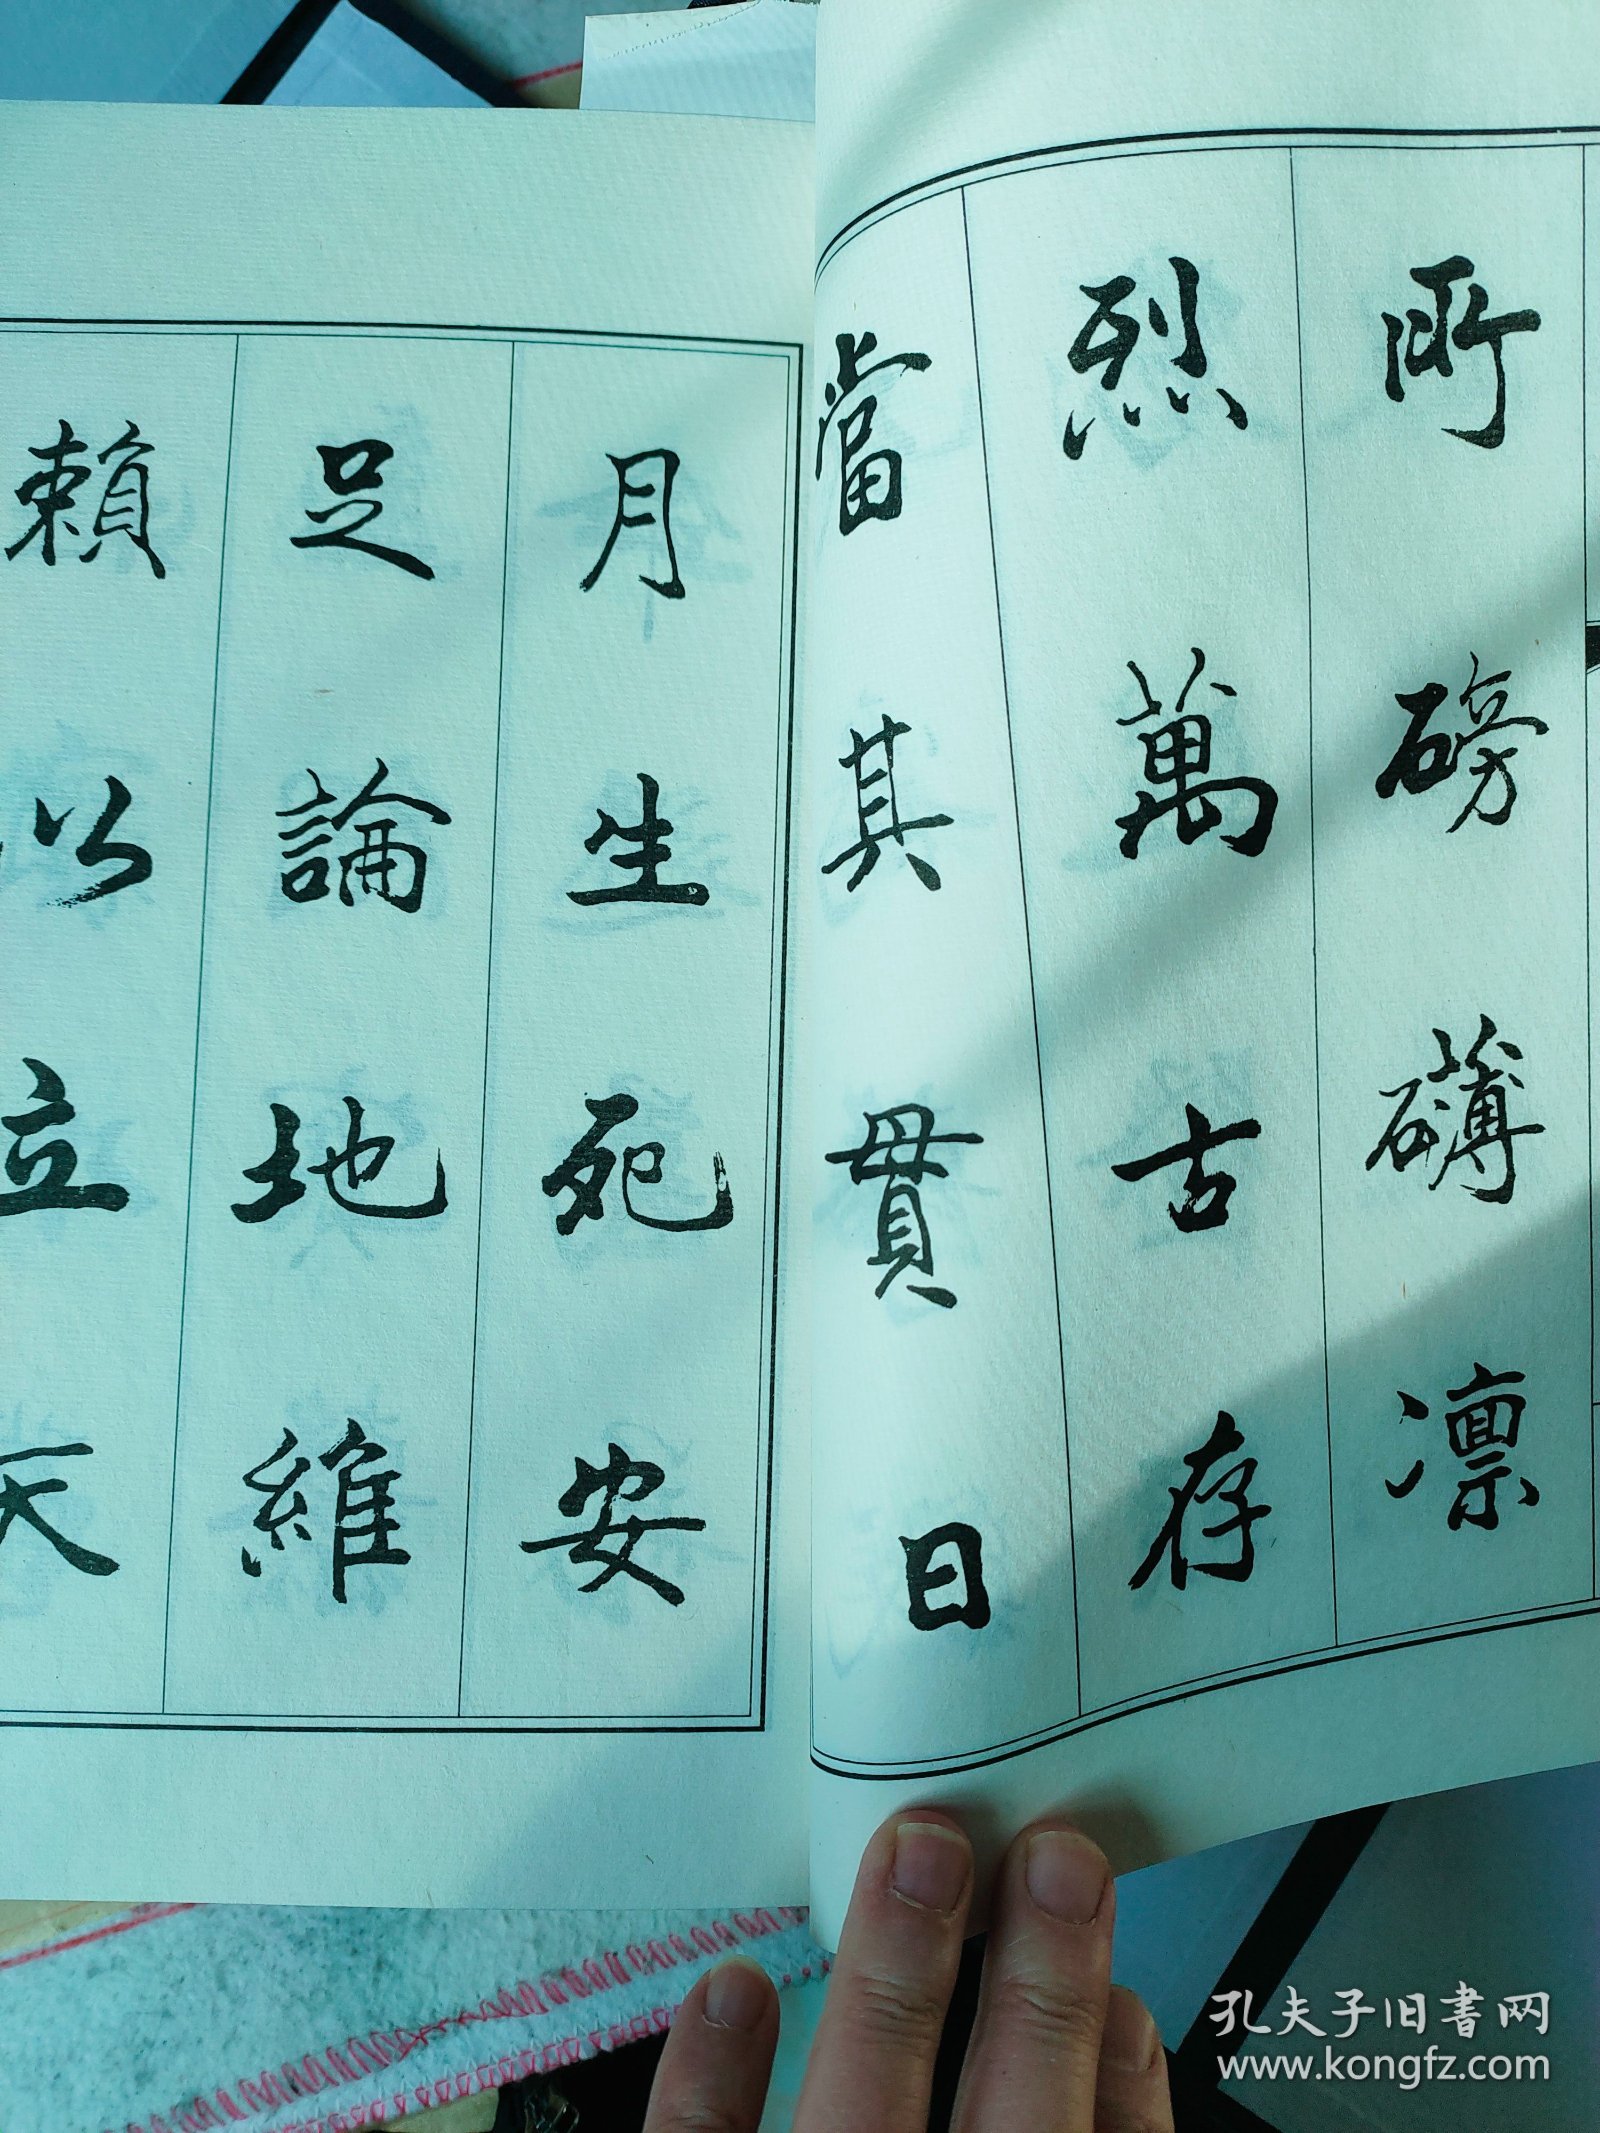 所磅礴凛
烈萬古存
當其貫日
月生死安
足論地維
賴以立天
孔夫子旧書网
www.kongfz.com